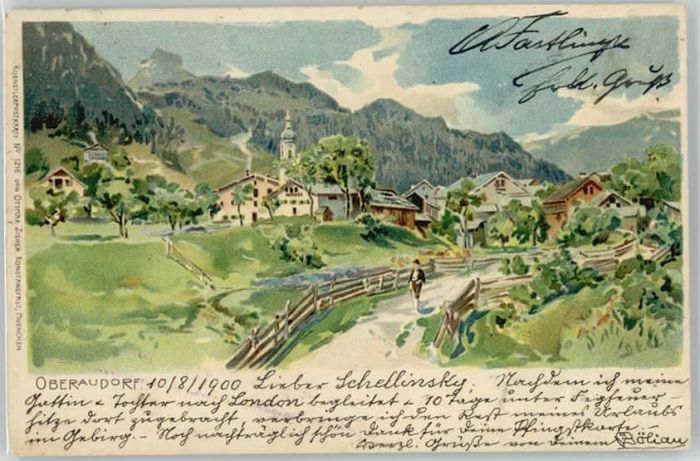 A Fastlinge
Frdl. Gruß
KUENSTLERPOSTKARTE No 1216 VON OTTMAR ZIEHER, KUNSTANSTALT, MUENCHEN
OBERAUDORF, 10/8/1900 Lieber Schellinsky, Nachdem ich meine
Gattin & Tochter nach London begleitet & 10 Tage unter Fegfeuer-
hitze dort zugebracht, verbringe ich den Rest meines Urlaubs
im Gebirg. - Noch nachträglich schön. Dank für Deine Pfingstkarte. -
Herzl. Grüße von deinem Bölian